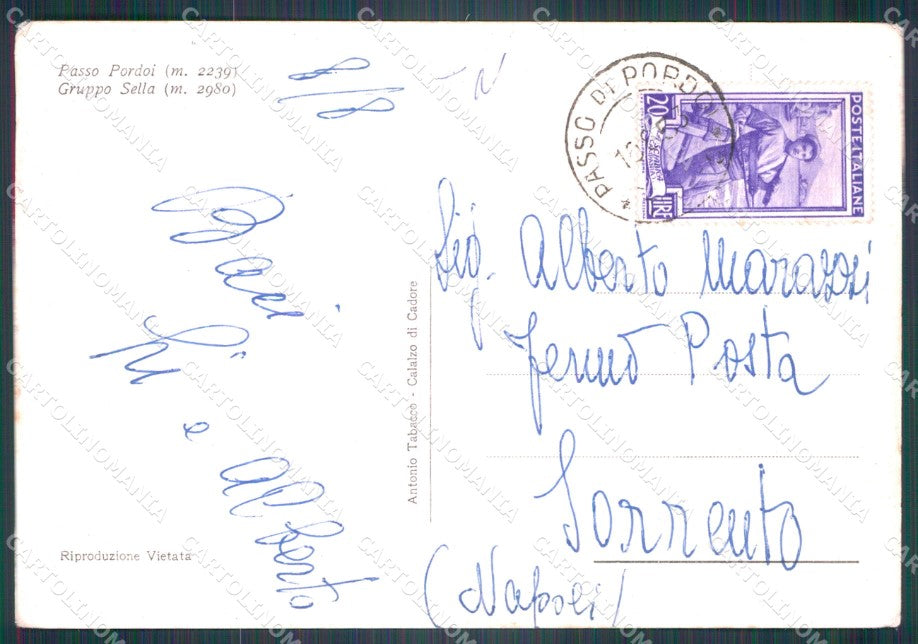 Passo Pordoi (m. 2239)
Gruppo Sella (m. 2980)
8/8
Baci
e Alberto
Antonio Tabacco - Calalzo di Cadore
Riproduzione Vietata
PASSO DI PORDOI
POSTE ITALIANE
20
LIRE
Sig. Alberto Marassi
Fermo Posta
Sorrento
(Napoli)
CARTOLINOMANIA